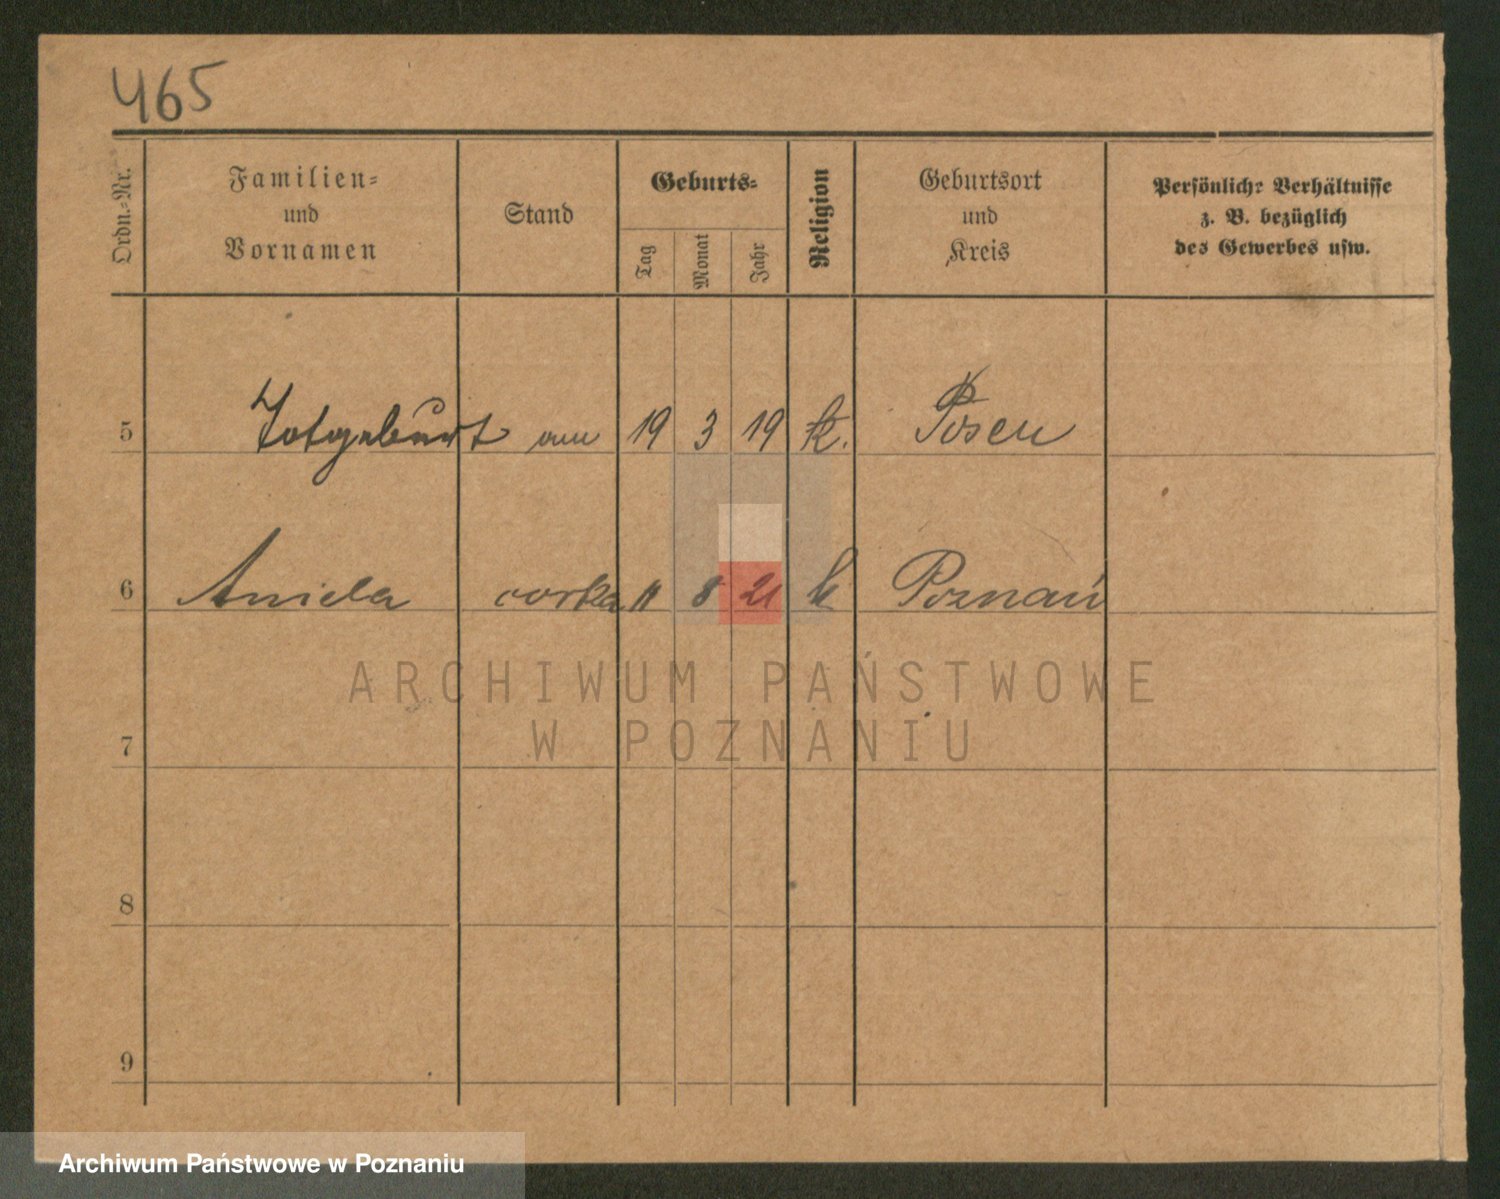 465
Ordn.-Nr.
Familien-
und
Vornamen
Stand
Geburts-
Tag
Monat
Jahr
Religion
Geburtsort
und
Kreis
Persönliche Verhältnisse
z. B. bezüglich
des Gewerbes usw.
5 Totgeburt am 19 3 19 k. Posen
6 Aniela corka 11 8 21 k Poznań
7
8
9
ARCHIWUM PAŃSTWOWE
W POZNANIU
Archiwum Państwowe w Poznaniu